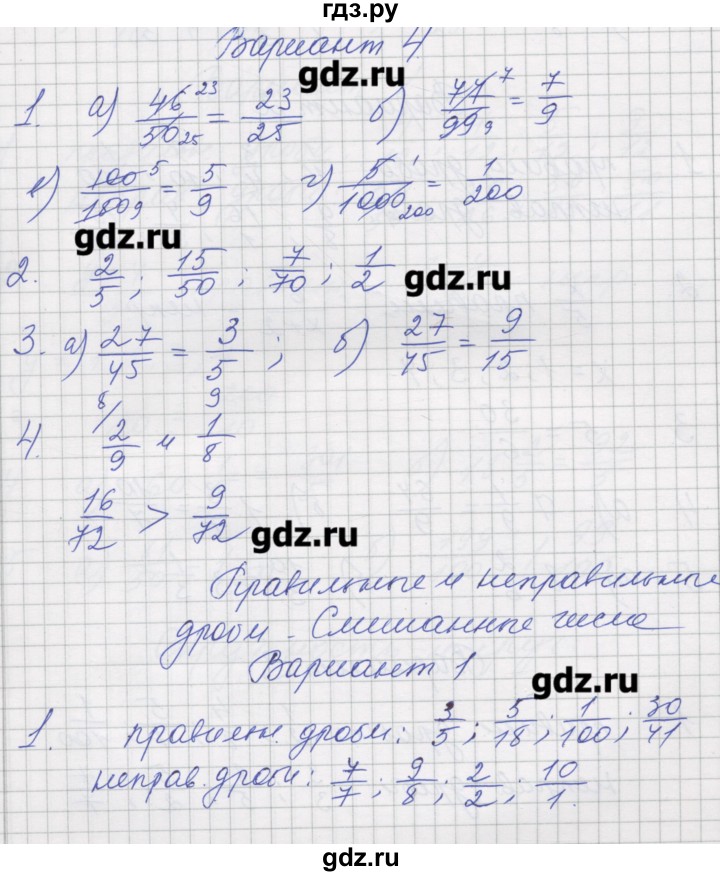 гдз.ру
Вариант 4
gdz.ru
1. а) 46/50 23 25 = 23/25 б) 77/99 7 9 = 7/9
в) 100/180 5 9 = 5/9 г) 5/1000 1 200 = 1/200
gdz.ru
2. 2/5 ; 15/50 ; 7/70 ; 1/2
gdz.ru
3. а) 27/45 = 3/5 ; б) 27/45 = 9/15
4. 8/ 2/9 и 9 1/8
16/72 > 9/72
gdz.ru
Правильные и неправильные
дроби. Смешанные числа
Вариант 1
gdz.ru
1. правильн. дроби: 3/5 ; 5/18 ; 1/100 ; 30/41
неправ. дроби: 7/7 ; 9/8 ; 2/2 ; 10/1.
gdz.ru